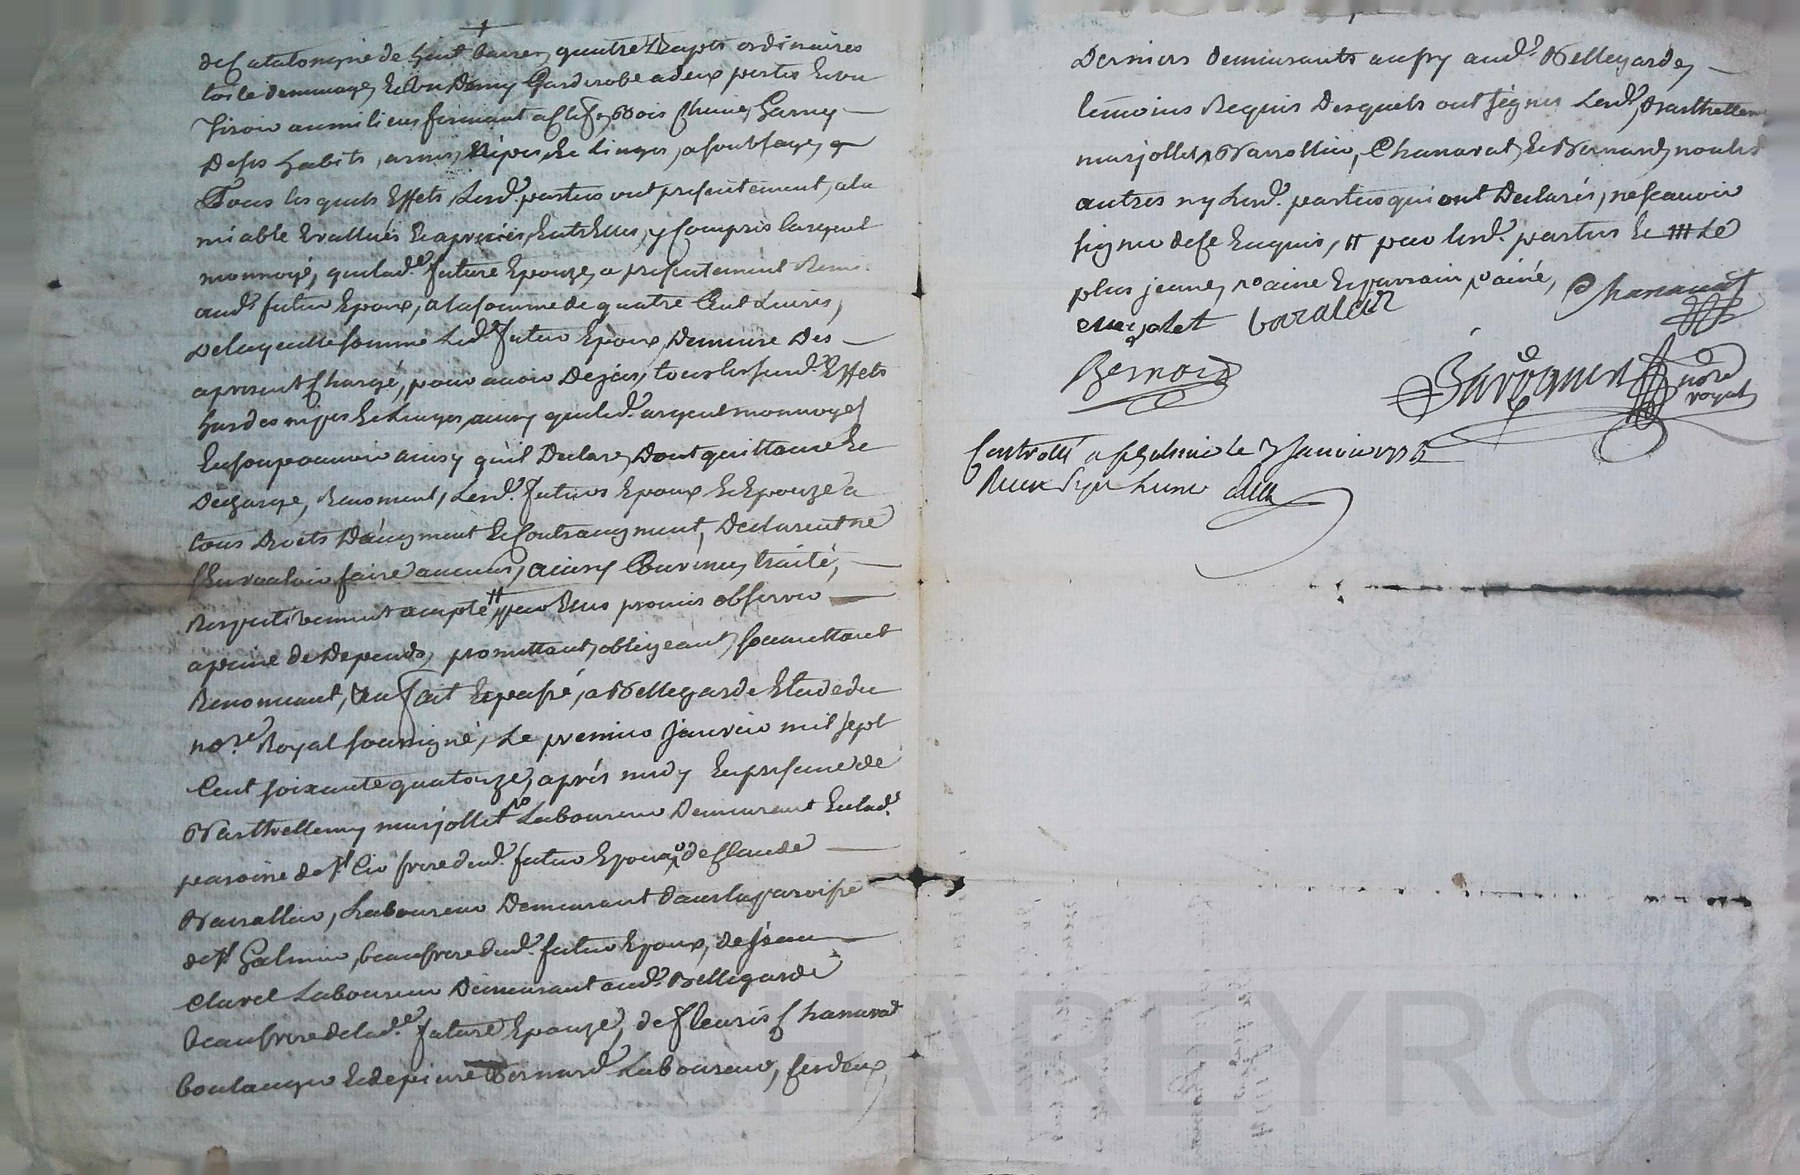 de Catalongne de haut barrer, quatre draps ordinaires
toile de menage, & un demy Garderobe a deux portes & un
Tiroir au milieu fermant a clef, Bois chene, Garny
De ses habits, nipes & Linges, a son usage,
Tous lesquels Effets, Lesd. parties ont presentement, a la
miable Evallués & apreciés, Entr'Elles, y Compris l'argent
monnoyé, que lad.e future Epouze, a presentement Remis
aud. futur Epoux, a la somme de quatre Cent Livres,
De laquelle somme Led. futur Epoux, Demeure Des
a present Chargé, pour avoir Dejas, tous les susd. Effets
hardes nipes & Linges, ainsy que led. argent monnoyé
En son pouvoir ainsy qu'il Declare, Dont quittance &
Decharge, Renoncent, Lesd. futurs Epoux & Epouze a
tous Droits D'augment & Contraugment, Declarent ne
S'en vouloir faire aucuns, ainsy Convenu, traité,
Respectivement accepté # par Elles promis observer
a peine de Depends, promettant, obligeant, soumettant
Renoncant, &c fait & passé, a Bellegarde Etude du
no.re Royal soussigné, Le premier Janvier mil sept
Cent soixante quatorze, après midy En presence de
Barthellemy murjollet Laboureur Demeurant En lad.
paroisse de St Cir frere dud. futur Epoux, de Claude
Barallier, Laboureur Demeurant dans la paroisse
de St Galmier, beaufrere dud. futur Epoux, de Jean
Clavel Laboureur Demeurant aud. Bellegarde
Beaufrere de lad.e future Epouze, de fleuris Chanavat
boulanger & de pierre Bernard Laboureur, ses deux
Derniers demeurants aussy aud. Bellegarde,
temoins Requis Desquels ont signés Lesd. Barthellemy
murjollet, Barallier, Chanavat, & Bernard, non les
autres ny Lesd. parties qui ont Declarés, ne scavoir
signer de ce Enquis, # par lesd. parties & Le
plus jeune, ainé & parrain ainé, Chanavat
murjolet baralier
Bernard
no.re
royal
Controllé a St Galmier le 7 Janvier 177
Recu